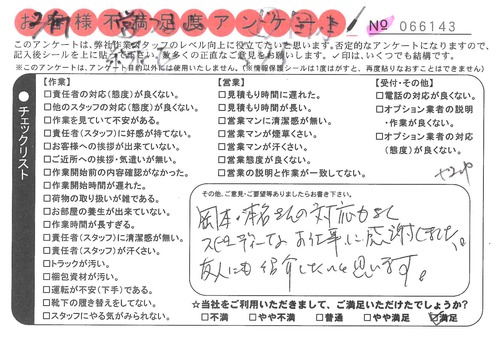 お客様不満足度アンケート
№ 066143
このアンケートは、弊社作業スタッフのレベル向上に役立てたいと思います。否定的なアンケートになりますので、
記入後シールを上に貼ってください。数多くの正直なご意見をお願いします。✓印は、いくつでも結構です。
※このアンケートは、アンケート目的以外には使用いたしません。(※情報保護シールは1度はがすと、再度貼りなおすことはできません)
チェックリスト
【作業】
□責任者の対応(態度)が良くない。
□他のスタッフの対応(態度)が良くない。
□作業を見ていて不安がある。
□責任者(スタッフ)に好感が持てない。
□お客様への挨拶が出来ていない。
□ご近所への挨拶・気遣いが無い。
□作業開始前の内容確認がなかった。
□作業開始時間が遅れた。
□荷物の取り扱いが雑である。
□お部屋の養生が出来ていない。
□作業時間が長すぎる。
□責任者(スタッフ)に清潔感が無い。
□責任者(スタッフ)が汗くさい。
□トラックが汚い。
□梱包資材が汚い。
□運転が不安(下手)である。
□靴下の履き替えをしてない。
□スタッフにやる気がみられない。
【営業】
□見積もり時間に遅れた。
□見積もり時間が長い。
□営業マンに清潔感が無い。
□営業マンが煙草くさい。
□営業マンが汗くさい。
□営業態度が良くない。
□営業の説明と作業が一致してない。
【受付・その他】
□電話の対応が良くない。
□オプション業者の説明
・作業が良くない。
□オプション業者の対応
(態度)が良くない。
その他、ご意見・ご要望等ありましたらお書き下さい。
岡本・本名さんの対応力そして
スピーディーなお仕事に感謝しました。
友人にも紹介したいと思います。
☆当社をご利用いただきまして、ご満足いただけたでしょうか?
□不満 □やや不満 □普通 □やや満足 ☑満足